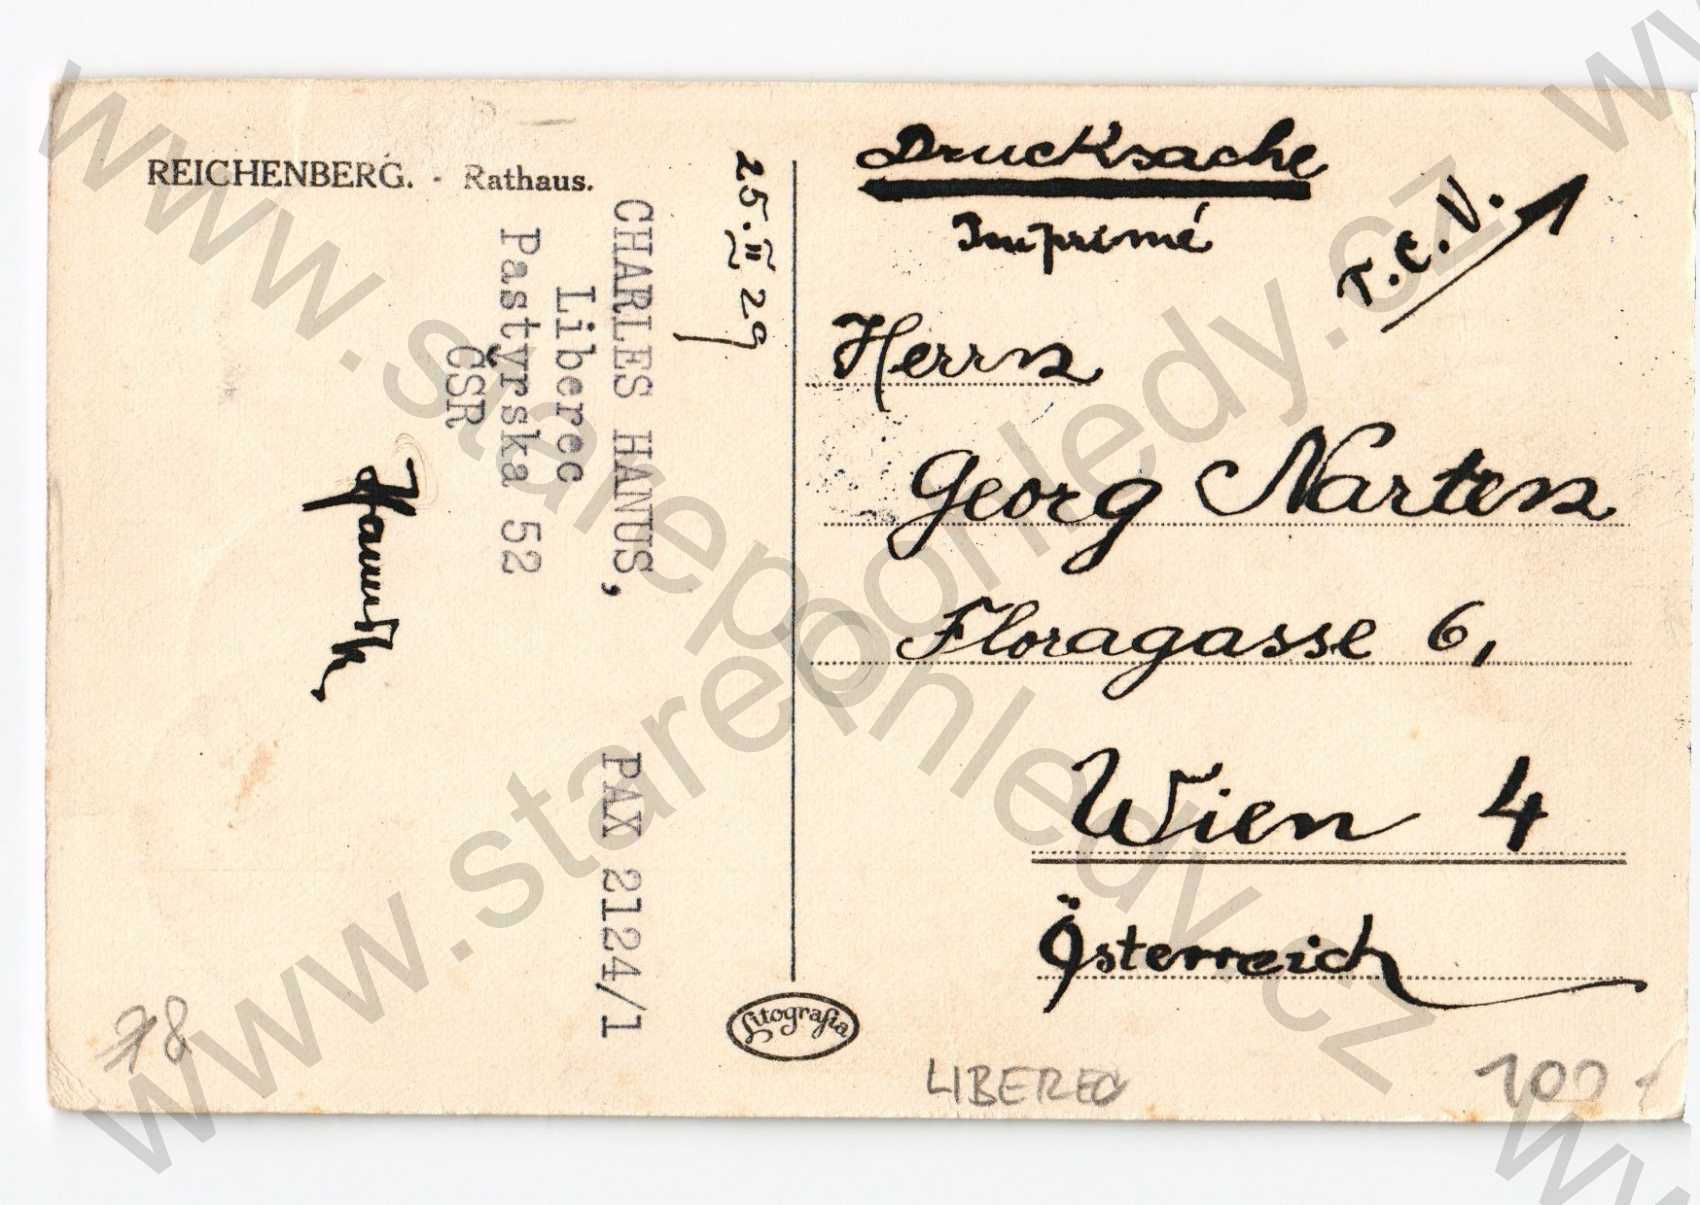 REICHENBERG. - Rathaus.
25. II 29
CHARLES HANUS,
Liberec
Pastýrska 52
ČSR
PAX 2124/1
Drucksache
Imprimé
T.C.V.
Herrn
Georg Narten
Floragasse 6,
Wien 4
Österreich
Litografia
78
LIBEREC
100
www.starepohledy.cz
www.starepohledy.cz